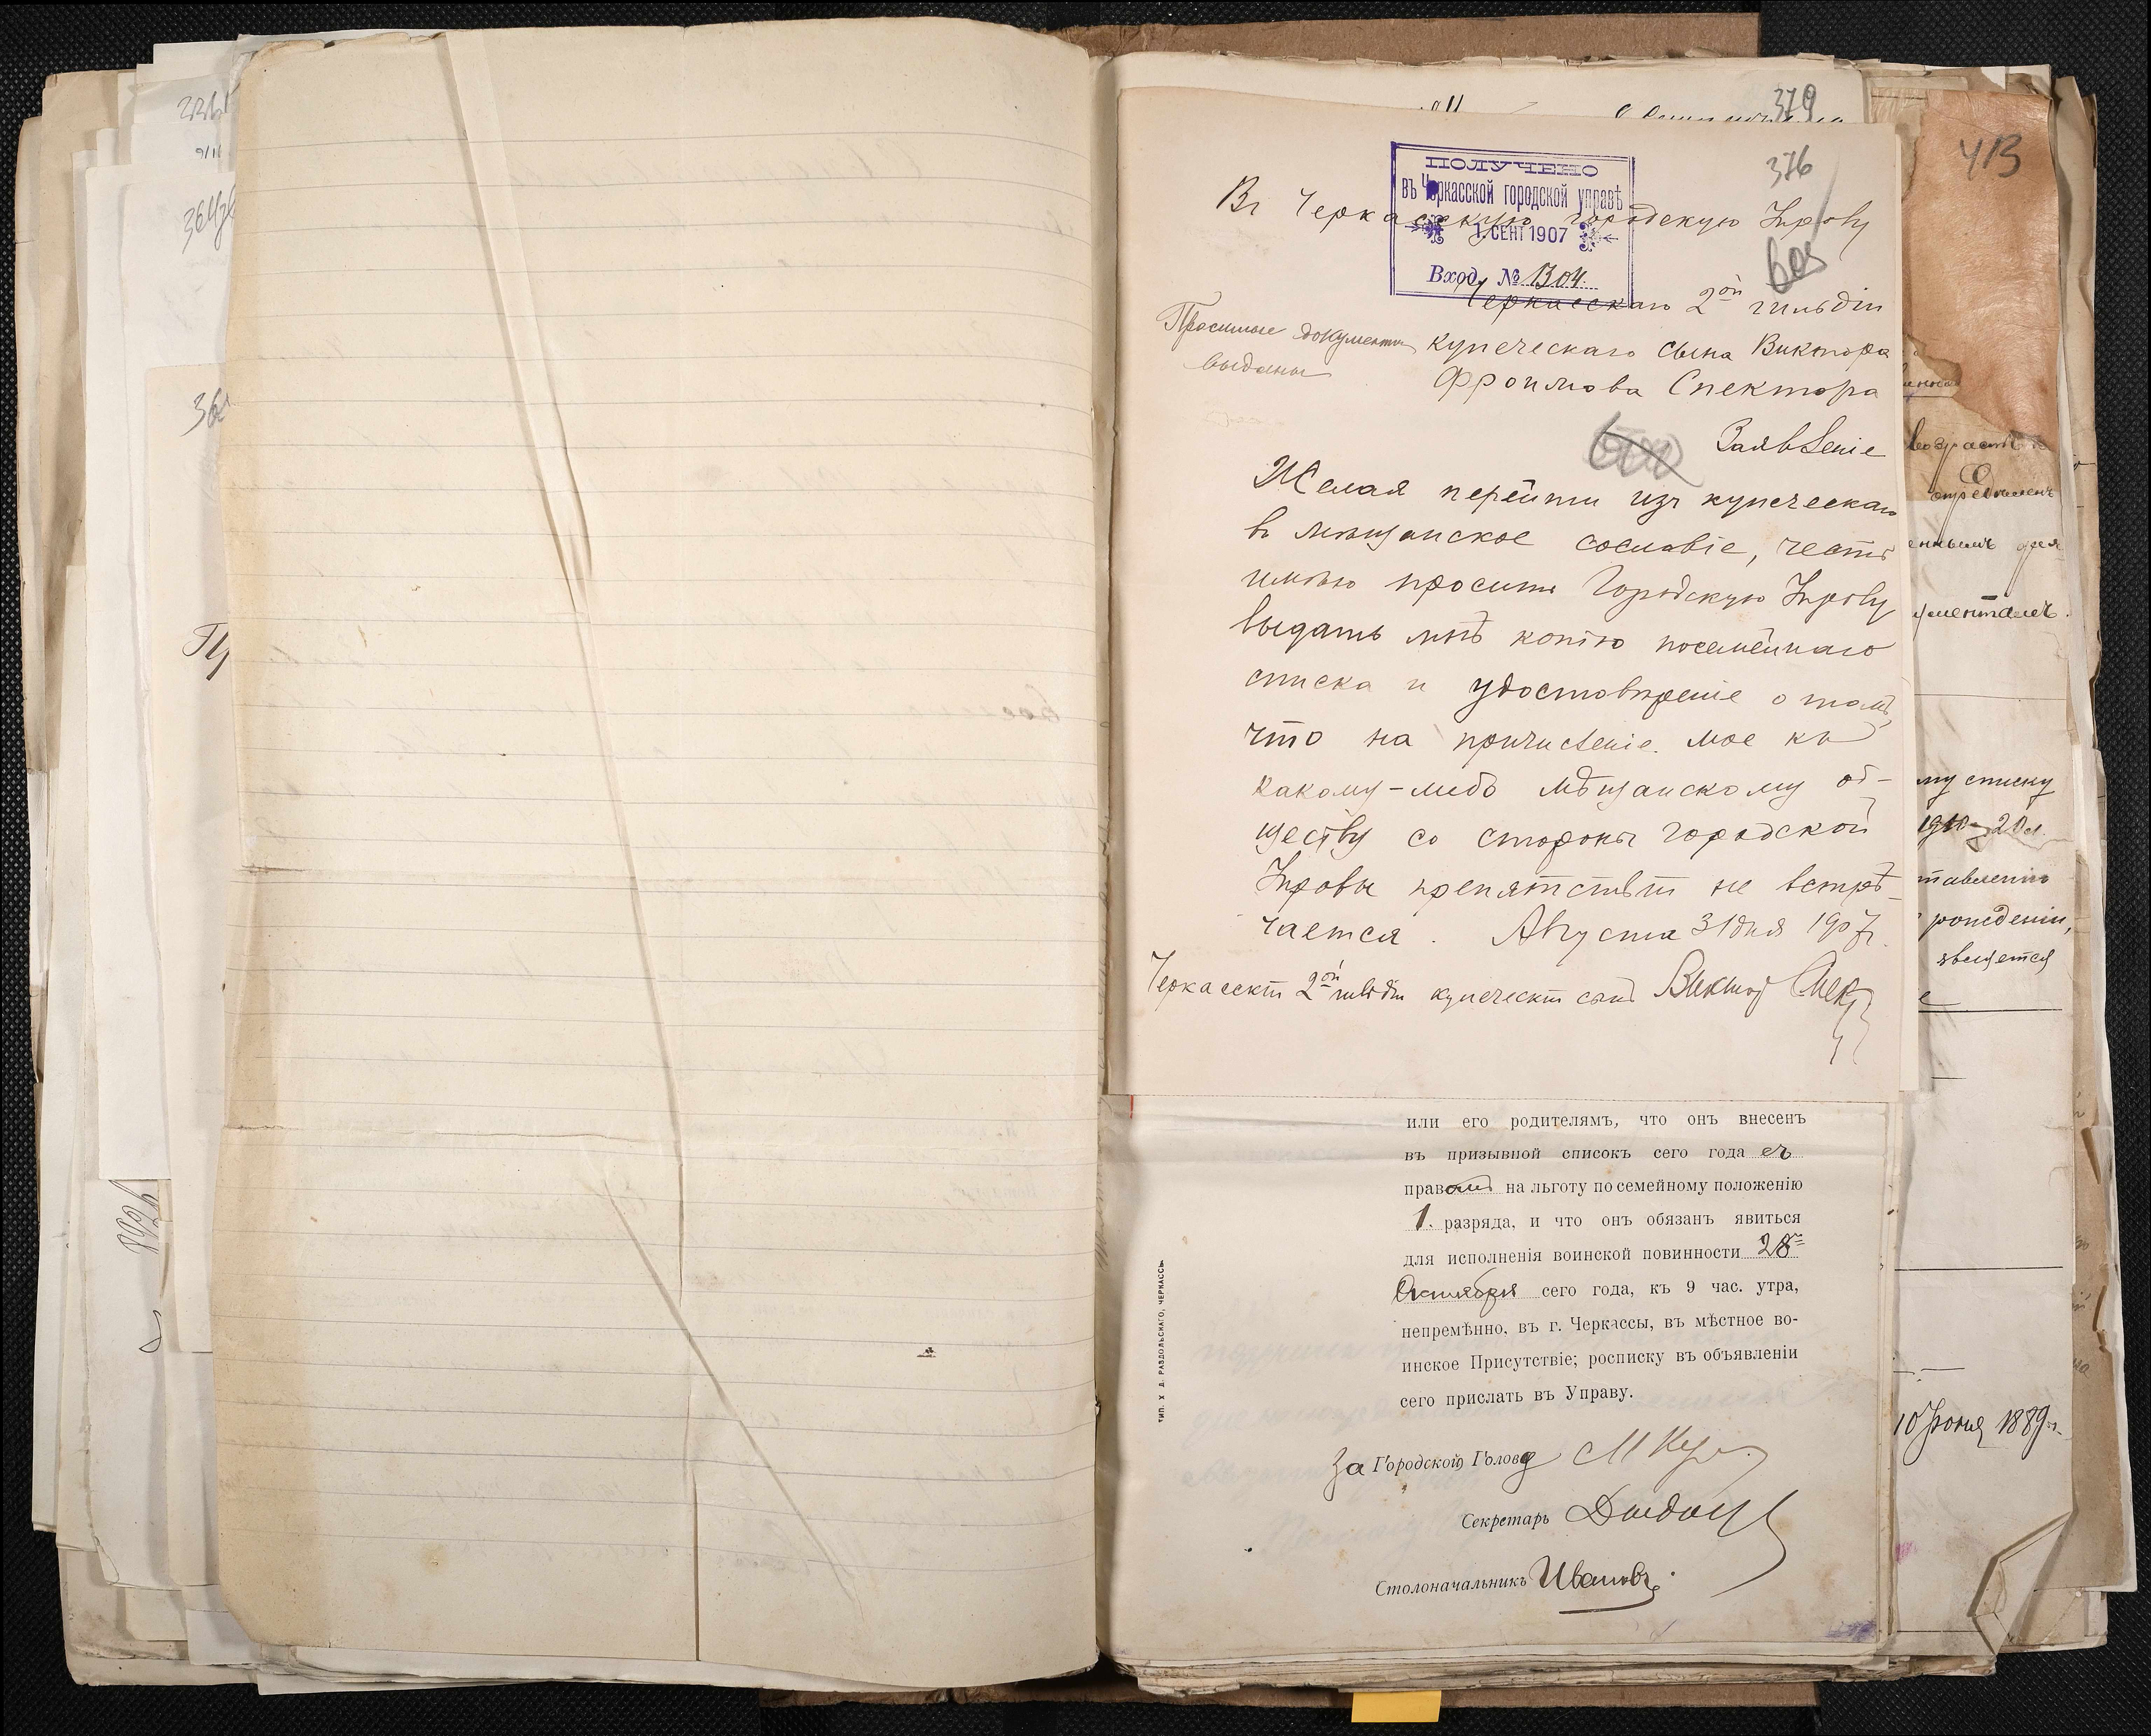 379
413
376
ПОЛУЧЕНО
въ Черкасской городской управѣ
1. СЕНТ 1907
Вход. № 1304.
Въ Черкасскую городскую Управу
609
Черкасскаго 2ой гильдіи
купеческаго сына Виктора
Фроимова Спектора
Просимые документы
выданы
Заявленіе
Желая перейти изъ купеческаго
въ мѣщанское сословіе, честь
имѣю просить Городскую Управу
выдать мнѣ копію посемейнаго
списка и удостовѣреніе о томъ,
что на причисленіе мое къ
какому-либо мѣщанскому об-
ществу со стороны городской
Управы препятствій не встрѣ-
чается. Августа 31 дня 1907 г.
Черкасскій 2ой гильдіи купеческій сынъ Викторъ Спекторъ
или его родителямъ, что онъ внесенъ
въ призывной списокъ сего года съ
правомъ на льготу по семейному положенію
1. разряда, и что онъ обязанъ явиться
для исполненія воинской повинности 28го
Октября сего года, къ 9 час. утра,
непремѣнно, въ г. Черкассы, въ мѣстное во-
инское Присутствіе; росписку въ объявленіи
сего прислать въ Управу.
За Городской Голова
Секретарь
Столоначальникъ Ивановъ
ТИП. Х. Д. РАВДОЛЬСКАГО, ЧЕРКАССЫ.
возрастѣ
ментамъ.
му списку
ставленію
рожденіи,
является
10 Іюня 1889 г.